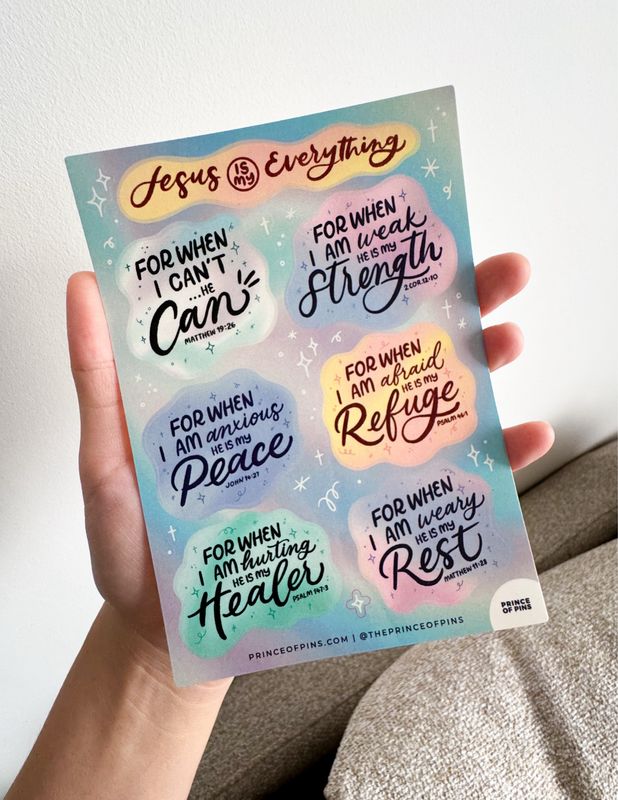 Jesus IS MY Everything
FOR WHEN
I CAN'T
...HE
Can
MATTHEW 19:26
FOR WHEN
I AM weak
HE IS MY
Strength
2 COR.12:10
FOR WHEN
I AM anxious
HE IS MY
Peace
JOHN 14:27
FOR WHEN
I AM afraid
HE IS MY
Refuge
PSALM 46:1
FOR WHEN
I AM hurting
HE IS MY
Healer
PSALM 147:3
FOR WHEN
I AM weary
HE IS MY
Rest
MATTHEW 11:28
PRINCEOFPINS.COM | @THEPRINCEOFPINS
PRINCE
OF PINS